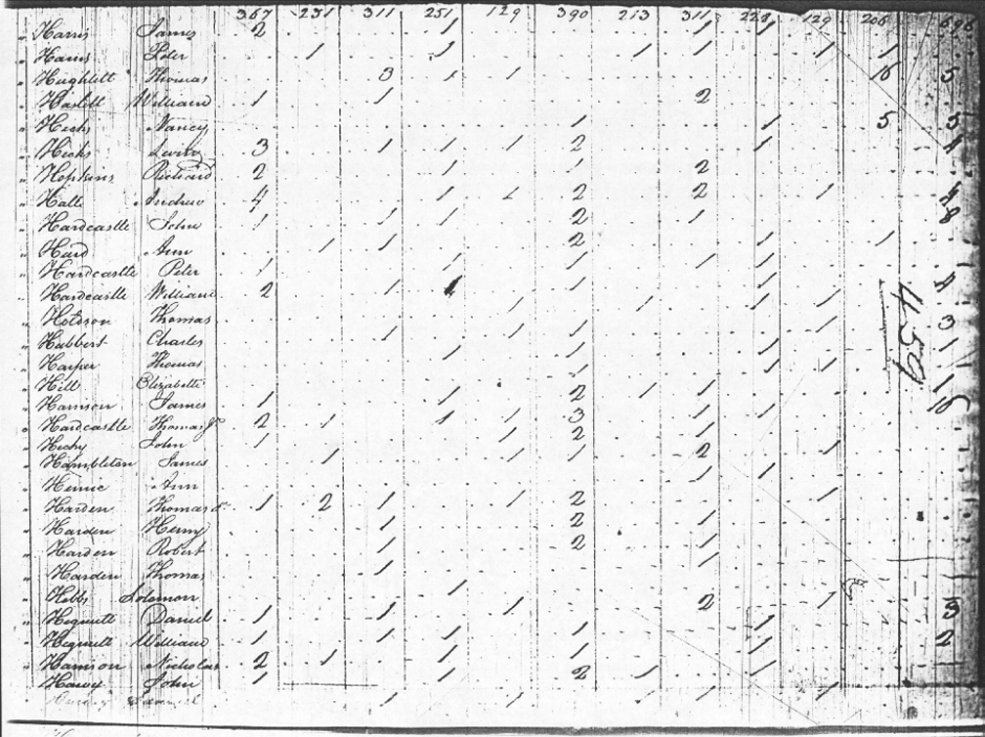 367 231 311 251 129 390 213 311 228 129 206 696
Harris James 2 1 1 1
Harris Peter 1 1 1 1 1 1
Hughlett Thomas 3 1 1 16 5
Haslett William 1 1 2
Hicks Nancy 1 1 5 5
Hicks Levin 3 1 1 1 2 1 4
Hopkins Richard 2 1 1 2
Hall Andrew 4 1 1 2 2 1
Hardcastle John 1 1 1 2 1 8
Hard Ann 1 1 2 1 1
Hardcastle Peter 1 1 1 1 1
Hardcastle William 2 1 1 1 4
Hotdson Thomas 1 1 1 1
Hubbert Charles 1 1 1 1 3
Harper Thomas 1 1 1 1
Hill Elizabeth 1 1
Harrison James 1 1 2 1 1
Hardcastle Thomas Jr 2 1 1 1 3 1 1
Hichy John 1 1 2 1
Hambleton James 1 1 1 2 1
Ann 1 1
Harden Thomas 1 2 1 1 2 1
Harden Henry 1 2 1
Harden Robert 1 2 1
Harden Thomas 1
Hobbs Solomon 1
Hignutt Daniel 1 1 1 2 1 3
Hignutt William 1 1 1 1 1 2
Harrison Nicholas 2 1 1 1 1
John 1 1 2 1 1
1 1 1 1 1
459